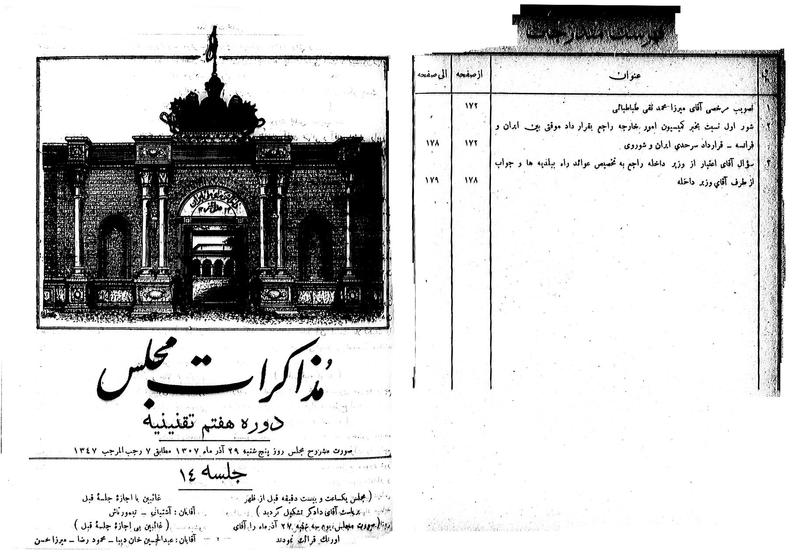 مذاکرات مجلس
دوره هفتم تقنینیه
صورت مشروح مجلس روز پنج شنبه ۲۹ آذر ماه ۱۳۰۷ مطابق ۷ رجب المرجب ۱۳۴۷
جلسه ۱۴
( مجلس یکساعت و بیست دقیقه قبل از ظهر
بریاست آقای دادگر تشکیل گردید )
( صورت مجلس یوم سه شنبه ۲۷ آذر ماه را آقای
اورنک قرائت نمودند
غائبین با اجازهٔ جلسهٔ قبل
آقایان : آشتیانی - تیمورتاش
( غائبین بی اجازهٔ جلسهٔ قبل )
آقایان : عبدالحسین خان دیبا - محمود رضا - میرزا حسن
فهرست مندرجات
عنوان از صفحه الی صفحه
۱ تصویب مرخصی آقای میرزا محمد تقی طباطبائی ۱۷۲
۲ شور اول نسبت بخبر کمیسیون امور خارجه راجع بقرار داد موقتی بین ایران و
فرانسه - قرارداد سرحدی ایران و شوروی ۱۷۲ ۱۷۸
۳ سؤال آقای اعتبار از وزیر داخله راجع به تخصیص عوائد راه ببلدیه ها و جواب
از طرف آقای وزیر داخله ۱۷۸ ۱۷۹